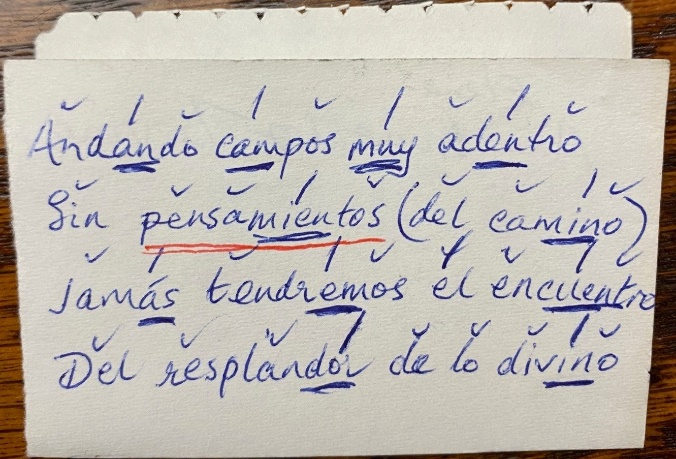 Andando campos muy adentro
Sin pensamientos (del camino)
Jamás tendremos el encuentro
Del resplandor de lo divino